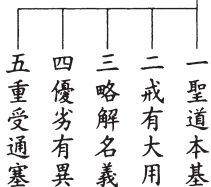 一聖道本基
二戒有大用
三略解名義
四優劣有異
五重受通塞